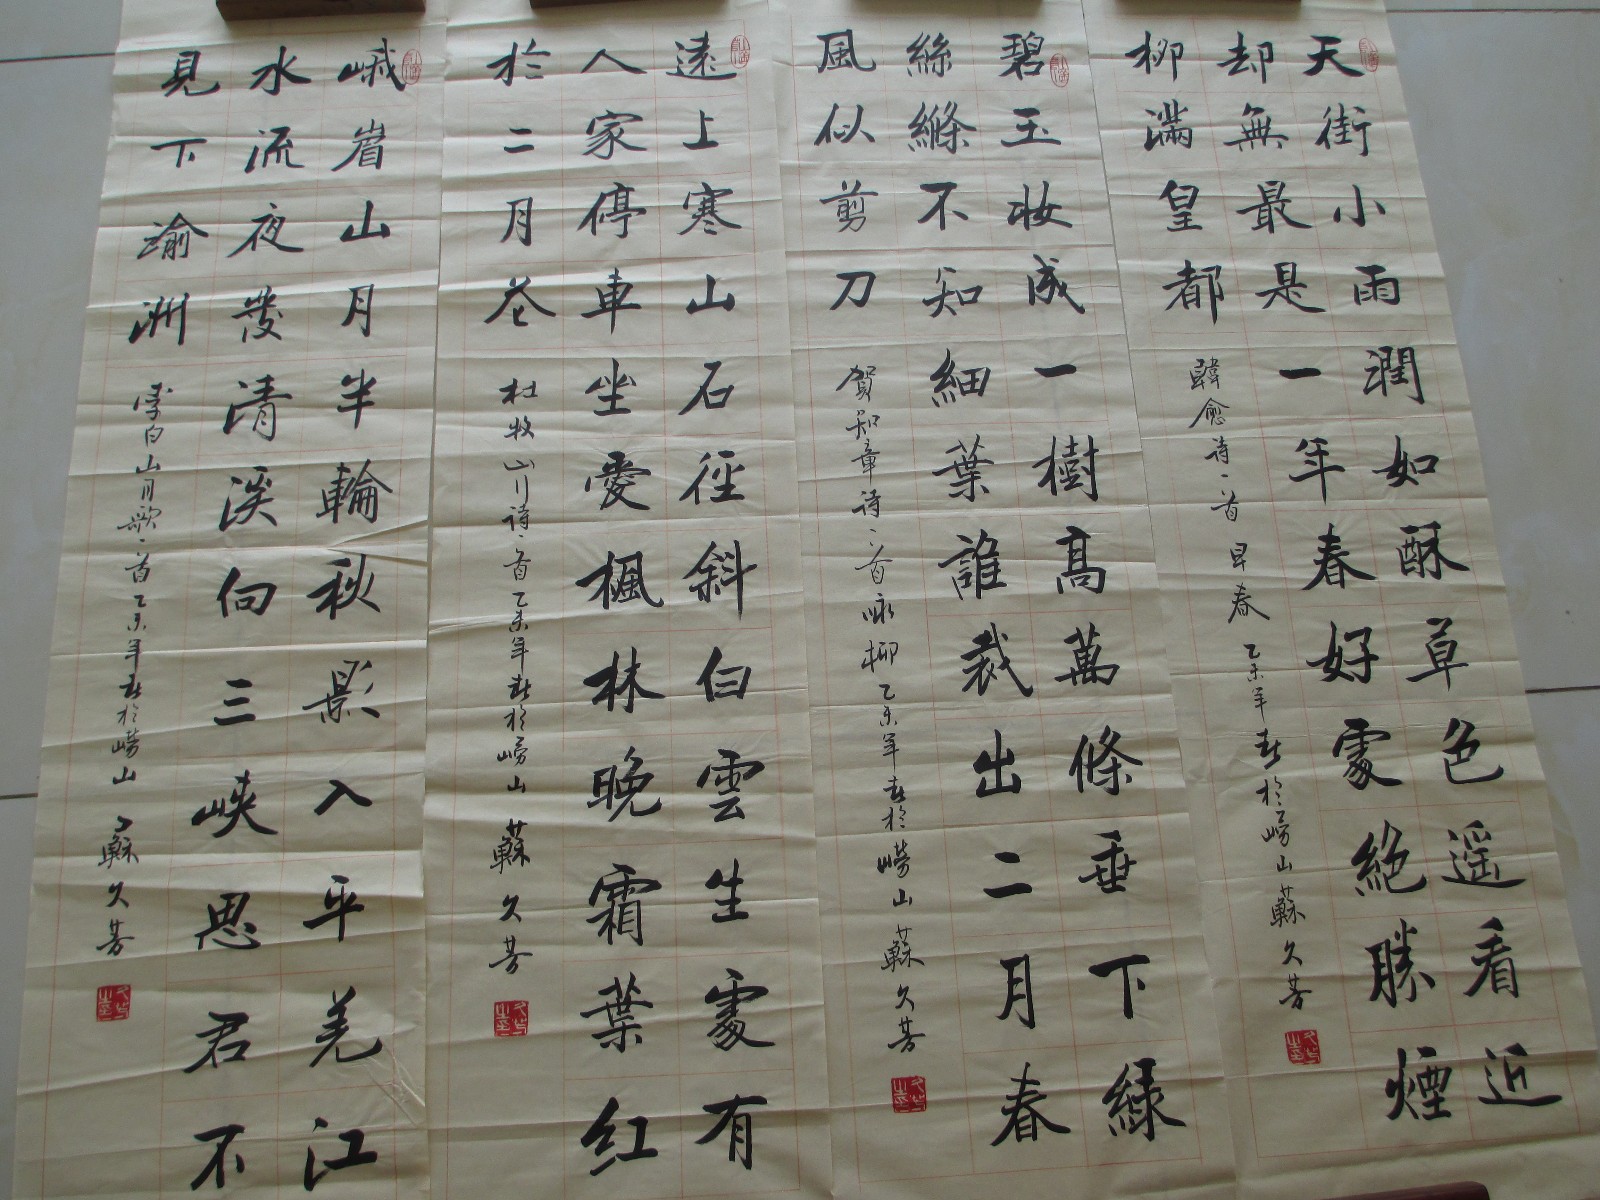 天街小雨潤如酥草色遥看近
却無最是一年春好處絕勝煙
柳滿皇都
韓愈诗一首 早春 乙未年春於嶗山 蘇久芳
碧玉妆成一樹高萬條垂下緑
絲縧不知細葉誰裁出二月春
風似剪刀
賀知章诗一首 咏柳 乙未年春於嶗山 蘇久芳
遠上寒山石徑斜白雲生處有
人家停車坐愛楓林晚霜葉紅
於二月花
杜牧山行诗一首 乙未年春於嶗山 蘇久芳
峨眉山月半輪秋影入平羌江
水流夜發清溪向三峽思君不
見下渝洲
李白山月歌一首 乙未年春於嶗山 蘇久芳